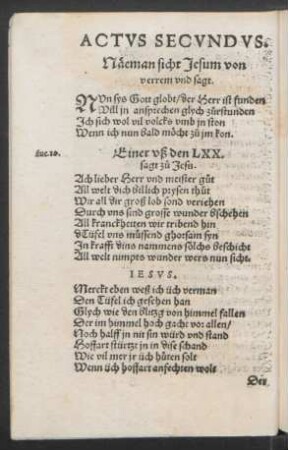 ACTVS SECVNDVS.
Näeman sicht Jesum von
verrem vnd sagt.
NVn sys Gott globt/der Herr ist funden
Will jn ansprechen glych zůrstunden
Ich sich wol vil volcks vmb jn ston
Wenn ich nun bald möcht zů jm kon.
Luc.10.
Einer vß den LXX.
sagt zů Jesu.
Ach lieber Herr vnd meister gůt
All welt dich billich prysen thůt
Wir all dir groß lob sond veriehen
Durch vns sind grosse wunder bschehen
All kranckheiten wir tribend hin
dTüfel vns můssend ghorsam syn
In krafft dins nammens sölchs beschicht
All welt nimpts wunder wers nun sicht.
IESVS.
Merckt eben weß ich üch verman
Den Tüfel ich gesehen han
Glych wie den Blitzg von himmel fallen
Der im himmel hoch gacht vor allen/
Noch halff jn nit sin würd vnd stand
Hoffart stürtzt jn in dise schand
Wie vil mer jr üch hůten solt
Wenn üch hoffart anfechten wolt
Der